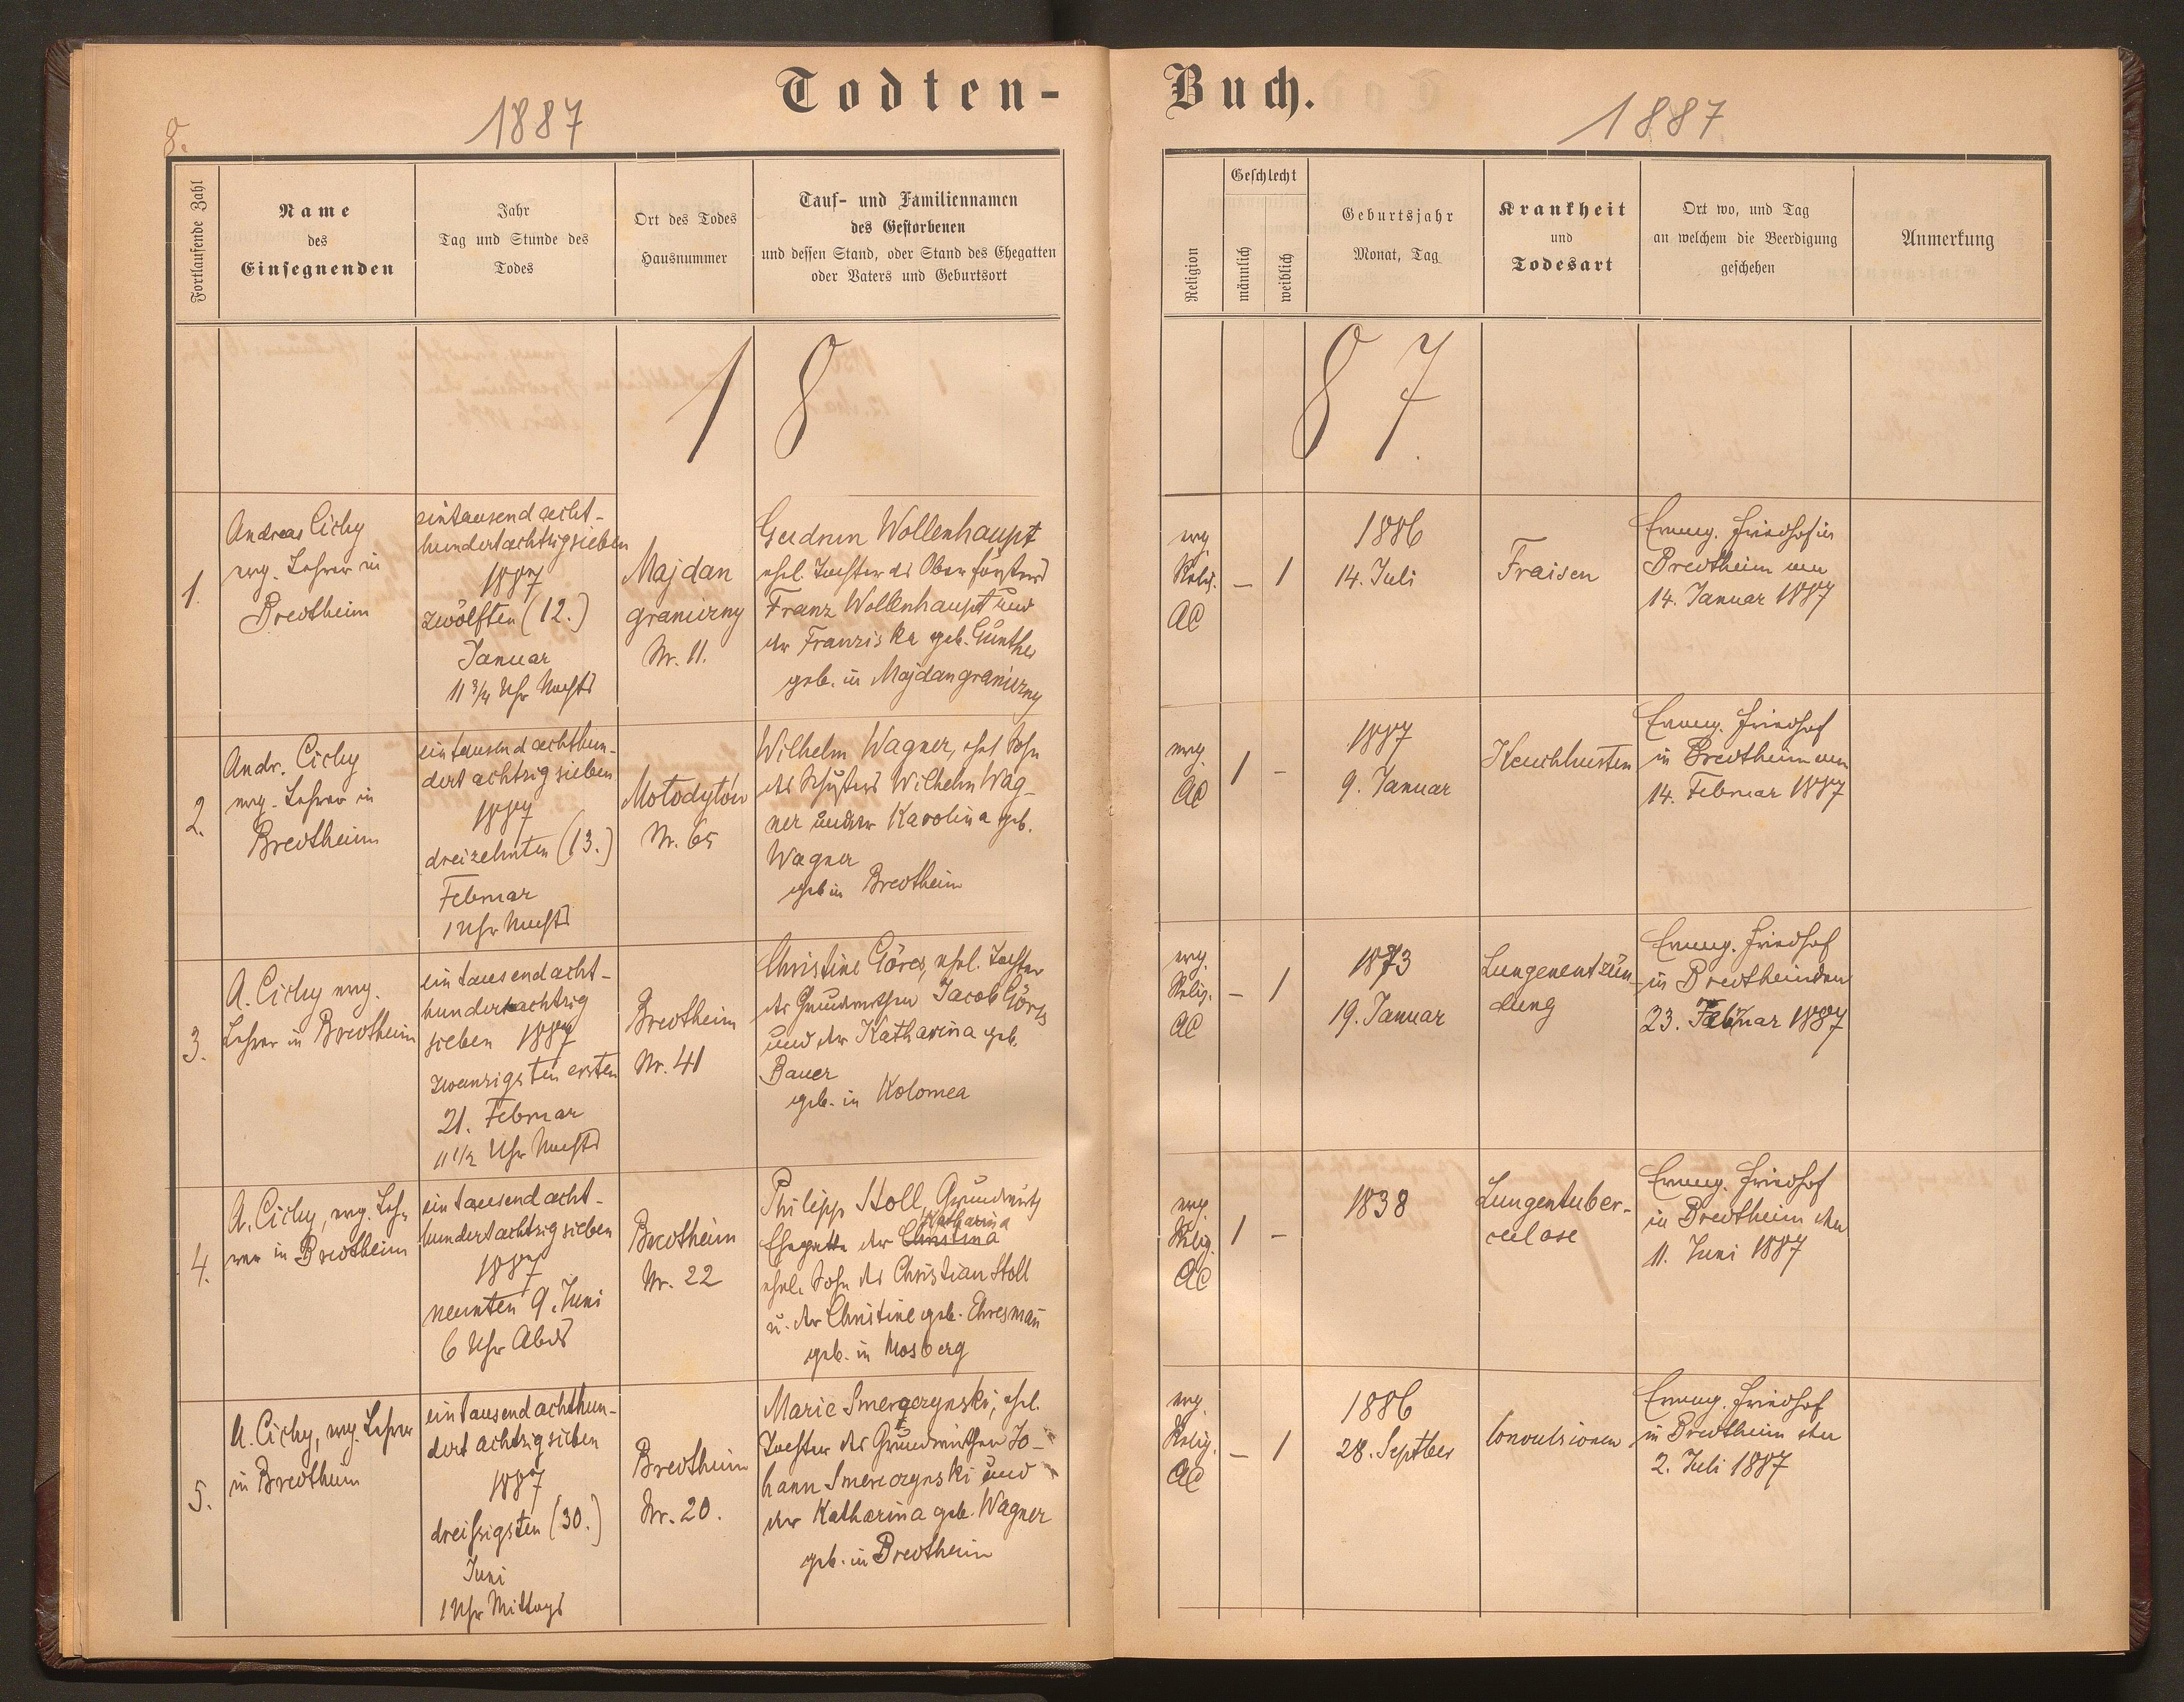 Todten-
Buch.
8.
1887
1887
Fortlaufende Zahl
Name
des
Einsegnenden
Jahr
Tag und Stunde des
Todes
Ort des Todes
Hausnummer
Tauf- und Familiennamen
des Gestorbenen
und dessen Stand, oder Stand des Ehegatten
oder Vaters und Geburtsort
Religion
Geschlecht
männlich
weiblich
Geburtsjahr
Monat, Tag
Krankheit
und
Todesart
Ort wo, und Tag
an welchem die Beerdigung
geschehen
Anmerkung
1 8 8 7
1.
Andreas Cichy
evg. Lehrer in
Bredtheim
eintausend acht-
hundertachtzigsieben
1887
zwölften (12.)
Januar
11 3/4 Uhr Nachts
Majdan
graniczny
Nr. 11.
Gudrun Wollenhaupt
ehel. Tochter des Oberförsters
Franz Wollenhaupt und
der Franziska geb. Günther
geb. in Majdan graniczny
evg.
Relig.
AC
– 1
1886
14. Juli
Fraisen
Evang. Friedhof in
Bredtheim am
14. Januar 1887
2.
Andr. Cichy
evg. Lehrer in
Bredtheim
eintausend achthun-
dert achtzig sieben
1887
dreizehnten (13.)
Februar
1 Uhr Nachts
Mołodyłów
Nr. 65
Wilhelm Wagner, ehel. Sohn
des Schusters Wilhelm Wag-
ner und der Karolina geb.
Wagner
geb in Bredtheim
evg.
AC
1 -
1887
9. Januar
Keuchhusten
Evang. Friedhof
in Bredtheim am
14. Februar 1887
3.
A. Cichy evg.
Lehrer in Bredtheim
eintausendacht-
hundertachtzig
sieben 1887
zwanzigsten ersten
21. Februar
11 1/2 Uhr Nachts
Bredtheim
Nr. 41
Christine Görcs, ehel. Tochter
des Grundwirthen Jacob Görcs
und der Katharina geb.
Bauer
geb. in Kolomea
evg.
Relig.
AC
– 1
1873
19. Januar
Lungenentzün-
dung
Evang. Friedhof
in Bredtheim den
23. Februar 1887
4.
A. Cichy, evg. Leh-
rer in Bredtheim
eintausend acht-
hundertachtzigsieben
1887
neunten 9. Juni
6 Uhr Abds
Bredtheim
Nr. 22
Philipp Stoll, Grundwirth
Katharina
Ehegatte der Christina
ehel. Sohn des Christian Stoll
u. der Christine geb. Ehresman̄
geb. in Mosberg
evg.
Relig.
AC
1 -
1838
Lungentuber-
culose
Evang. Friedhof
in Bredtheim den
11. Juni 1887
5.
A. Cichy, evg. Lehrer
in Bredtheim
eintausend achthun-
dert achtzigsieben
1887
dreißigsten (30.)
Juni
1 Uhr Mittags
Bredtheim
Nr. 20.
Marie Smereczynski, ehel.
Tochter des Grundwirthen Jo-
hann Smereczynski und
der Katharina geb. Wagner
geb. in Bredtheim
evg.
Relig.
AC
– 1
1886
28. Septber
Convulsionen
Evang. Friedhof
in Bredtheim den
2. Juli 1887